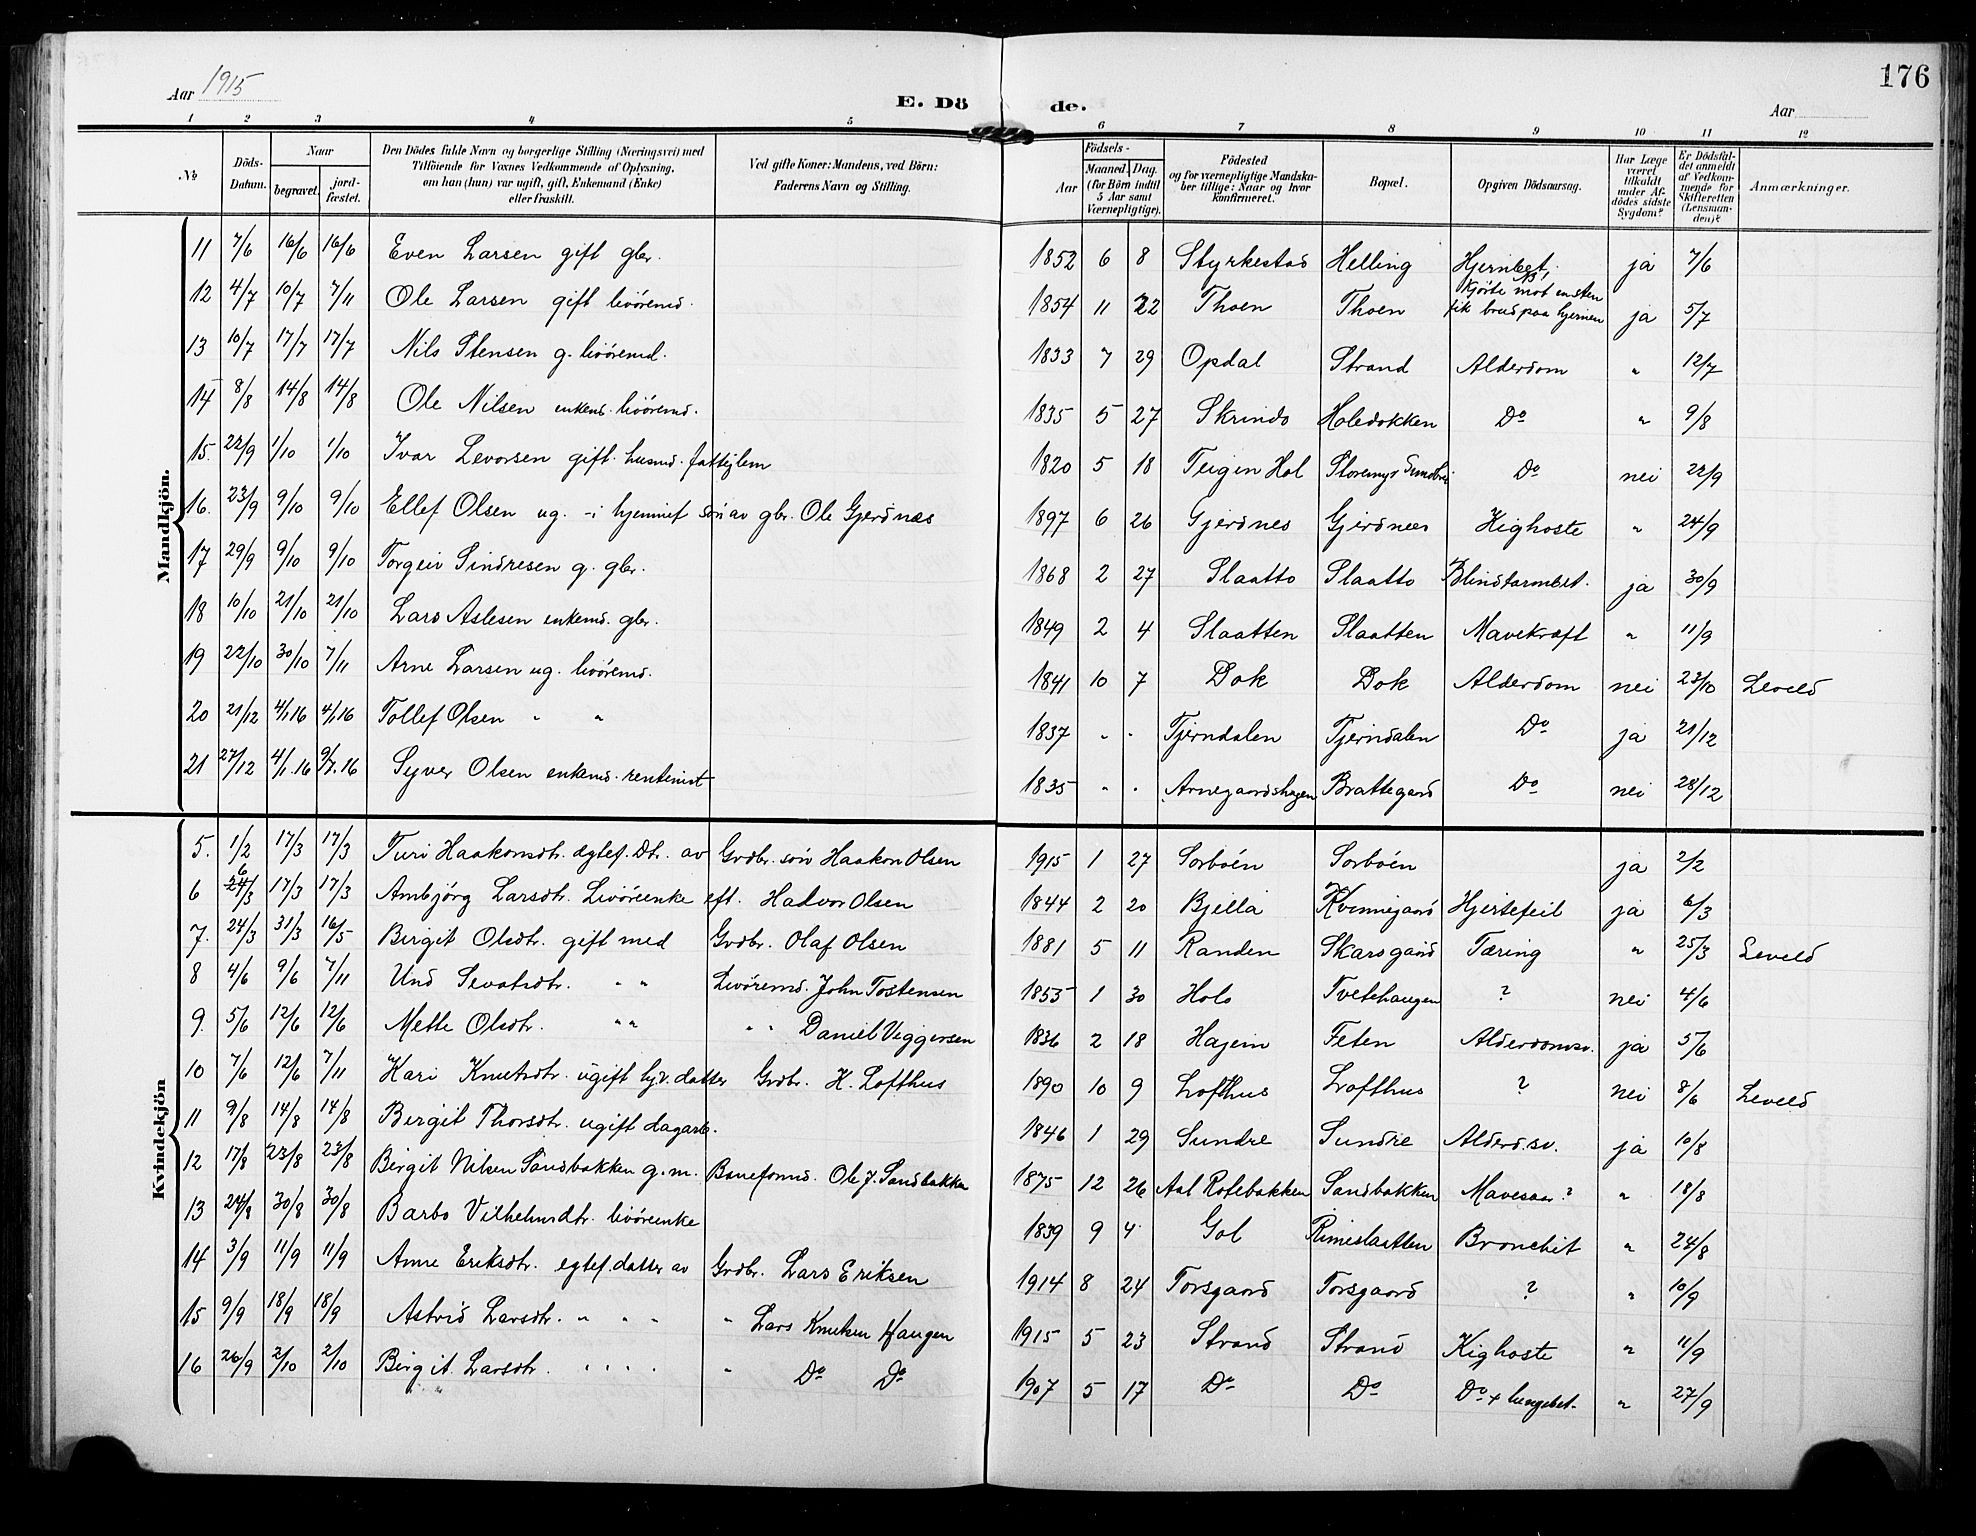 Aar 1915
E. Dö
de.
Aar
176
1 2 3 4 5 6 7 8 9 10 11 12
No
Döds-Datum.
Naar
begravet.
jord-fæstet.
Den Dödes fulde Navn og borgerlige Stilling (Næringsvei) med
Tilföiende for Voxnes Vedkommende af Oplysning,
om han (hun) var ugift, gift, Enkemand (Enke)
eller fraskilt.
Ved gifte Koner: Mandens, ved Börn:
Faderens Navn og Stilling.
Födsels-
Aar
Maaned. Dag.
(for Börn indtil
5 Aar samt
Værnepligtige).
Födested
og for værnepligtige Mandska-
ber tillige: Naar og hvor
konfirmeret.
Bopæl.
Opgiven Dödsaarsag.
Har Læge
været
tilkaldt
under Af-
dödes sidste
Sygdom?
Er Dödsfal-
det anmeldt
af Vedkom-
mende for
Skifteretten
(Lensman-
den)?
Anmærkninger.
Mandkjön.
11 7/6 16/6 16/6 Even Larsen gift gbr. 1852 6 8 Styrkestad Helling Hjernebet. ja 7/6
12 4/7 10/7 7/11 Ole Larsen gift livöremd. 1854 11 22 Thoen Thoen kjörte mot en sten
fik brud paa hjernen ja 5/7
13 10/7 17/7 17/7 Nils Stensen g. livöremd. 1833 7 29 Opdal Strand Alderdom " 12/7
14 8/8 14/8 14/8 Ole Nilsen enkemd. livöremd. 1835 5 27 Skrindo Holedokken Do " 9/8
15. 22/9 1/10 1/10 Ivar Levorsen gift. husmd. fattiglem 1820 5 18 Teigen Hol Storemyr Sundbrei Do nei 22/9
16. 23/9 9/10 9/10 Ellef Olsen ug. - i hjemmet sön av gbr. Ole Gjerdnæs 1897 6 26 Gjerdnes Gjerdnæs Kighoste " 24/9
17 29/9 9/10 9/10 Torgeir Sindresen g. gbr. 1868 2 27 Slaatto Slaatto Blindtarmbet. ja 30/9
18 10/10 21/10 21/10 Lars Aslesen enkemd. gbr. 1849 2 4 Slaatten Slaatten Mavekræft " 11/9
19 22/10 30/10 7/11 Arne Larsen ug. livöremd. 1841 10 7 Dok Dok Alderdom nei 23/10 Leveld
20 21/12 4/1 16 4/1 16 Tollef Olsen " " 1837 " " Tjerndalen Tjerndalen Do ja 21/12
21 27/12 4/1.16 9/7.16 Syver Olsen enkemd. rentenist 1835 " " Arnegaardshagen Brattegard Do nei 28/12
Kvindekjön
5. 1/2 17/3 17/3 Turi Haakonsdtr. ægtef. Dtr. av Grdbr. sön Haakon Olsen 1915 1 27 Sorboén Sorboén ja 2/2
6 6/3 17/3 17/3 Ambjörg Larsdtr. Livöreenke eft. Hadvor Olsen 1844 2 20 Bjella Kvinnegard Hjertefeil ja 6/3
7. 24/3 31/3 16/5 Birgit Olsdtr. gift med Grdbr. Olaf Olsen 1881 5 11 Randen Skarsgard Tæring " 25/3 Leveld
8 4/6 9/6 7/11 Und Sevatsdtr. " " Livöremd. John Tostensen 1855 1 30 Holo Tvetehaugen ? nei 4/6
9. 5/6 12/6 12/6 Mette Olsdtr. " " " " Daniel Viggersen 1836 2 18 Hagein Feten Alderdomsv. ja 5/6
10 7/6 12/6 7/11 Kari Knutsdtr. ugift hjv. datter Grdbr. K. Lofthus 1890 10 9 Lofthus Lofthus ? nei 8/6 Leveld
11 9/8 14/8 14/8 Birgit Thorsdtr. ugift dagarb. 1846 1 29 Sundre Sundre Alderd.sv. ja 10/8
12 17/8 23/8 23/8 Birgit Nilsen Sandbakken g.m. Baneformd. Ole J. Sandbakken 1875 12 26 Aal Rotebakken Sandbakken Mavesaar? " 18/8
13 24/8 30/8 30/8 Barbo Vilhelmsdtr. livöreenke 1839 9 4 Gol Rimeslaatten Bronchit " 24/8
14 3/9 11/9 11/9 Anne Eriksdtr. egtef. datter av Grdbr. Lars Eriksen 1914 8 24 Torsgaard Torsgaard ? " 10/9
15 9/9 18/9 18/9 Astrid Larsdtr. " " " " Lars Knutsen Haugen 1915 5 23 Strand Strand Kighoste " 11/9
16 26/9 2/10 2/10 Birgit Larsdtr. " " " " " Do Do 1907 5 17 Do Do Do + lungebet. " 27/9